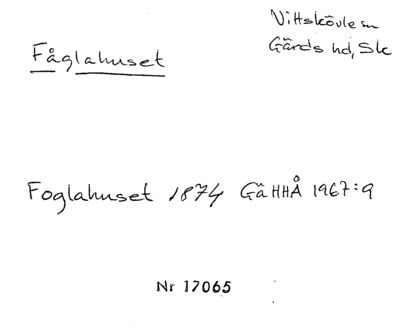 Vittskövle sn
Gärds hd, Sk
Fåglahuset
Foglahuset 1874 GäHHÅ 1967:9
Nr 17065